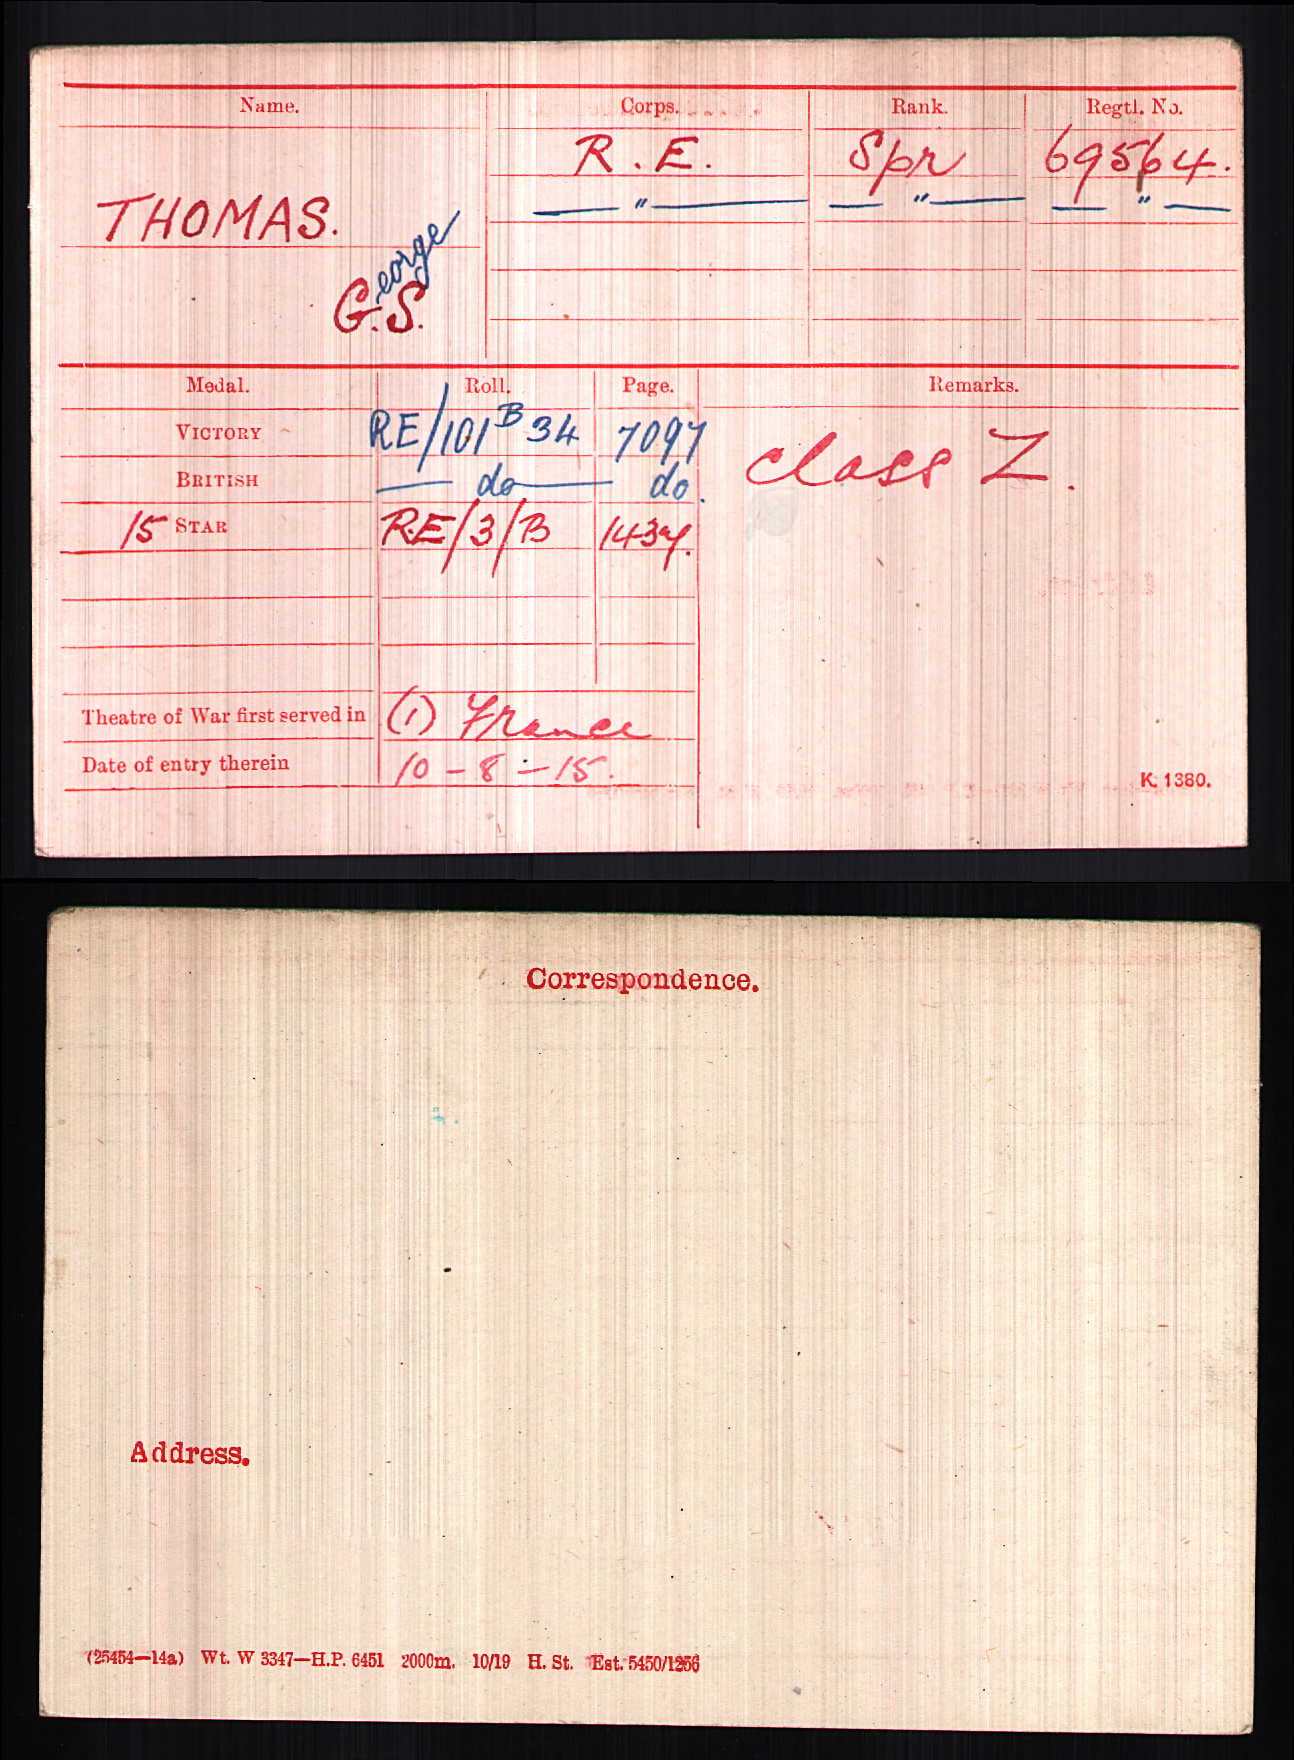 Name. Corps. Rank. Regtl. No.
R. E. Spr 69564.
THOMAS. — " — — " — — " —
George S.
Medal. Roll. Page. Remarks.
VICTORY RE/101 B 34 7097
BRITISH — do — do. Class Z.
15 STAR R.E/3/B 1437.
Theatre of War first served in (1) France
Date of entry therein 10 - 8 - 15.
K. 1380.
Correspondence.
Address.
(25454—14a) Wt. W 3347—H.P. 6451 2000m. 10/19 H. St. Est. 5450/1256